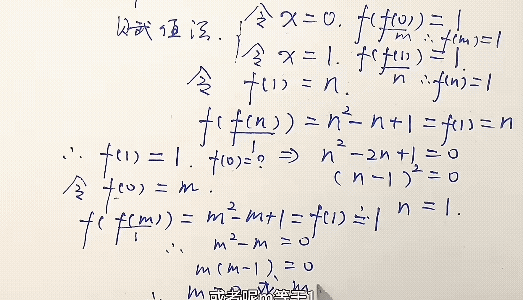 赋值法. 令 x=0. f(f(0))=1
m ∴f(m)=1
令 x=1. f(f(1))=1.
n ∴f(n)=1
令 f(1)=n.
f(f(n))=n²-n+1=f(1)=n
1
∴ f(1)=1. f(0)=? ⇒ n²-2n+1=0
(n-1)²=0
令 f(0)=m. n=1.
f(f(m))=m²-m+1=f(1)=1
1
∴ m²-m=0
m(m-1)=0
∴ m=0 或 m
或者呢m等于1